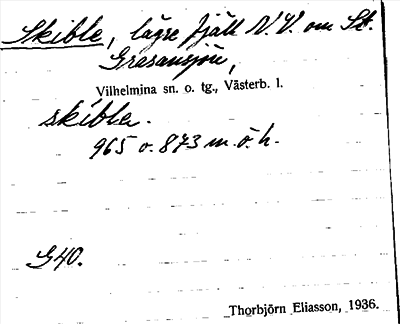 Skible, lägre fjäll N.V. om St.
Grasansjön,
Vilhelmina sn. o. tg., Västerb. l.
skíbla.
965 o. 873 m. ö. h.
G40.
Thorbjörn Eliasson, 1936.